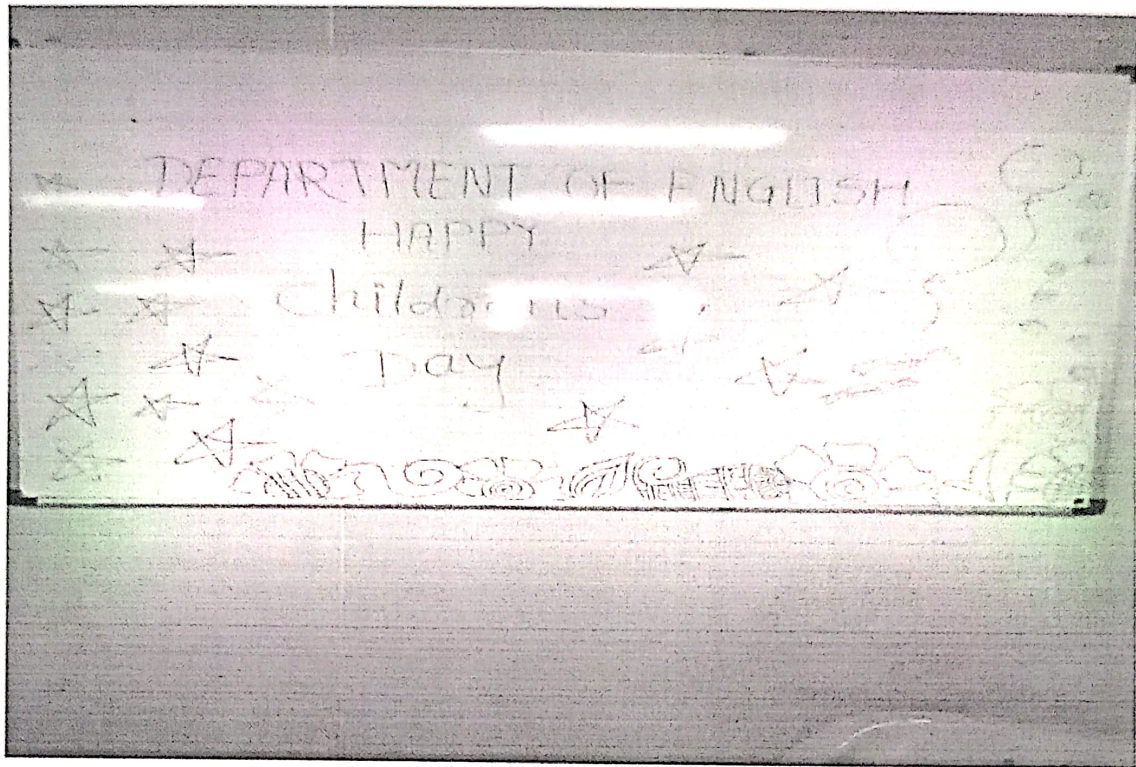 DEPARTMENT OF ENGLISH
HAPPY
Childrens
Day